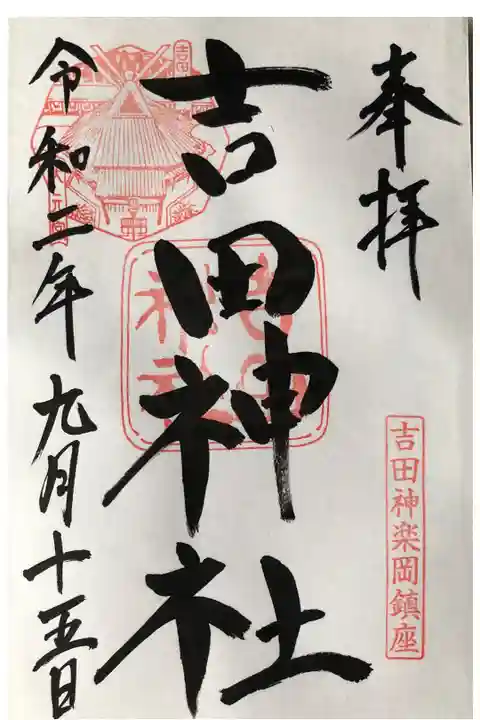 奉拝
吉田神楽岡鎮座
吉田神社
吉田
神社
令和二年九月十五日